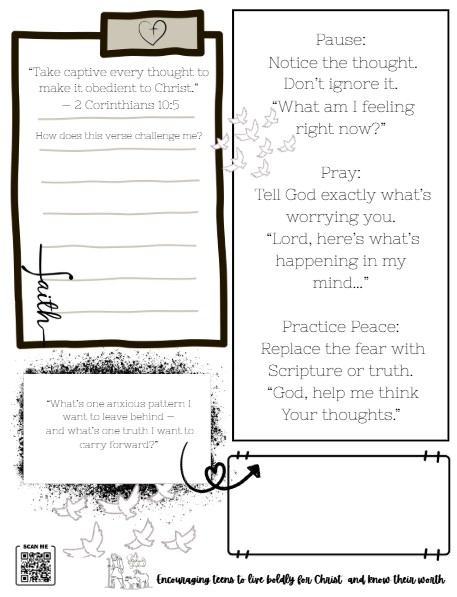 “Take captive every thought to
make it obedient to Christ.”
— 2 Corinthians 10:5
How does this verse challenge me?
faith
“What’s one anxious pattern I
want to leave behind —
and what’s one truth I want to
carry forward?”
Pause:
Notice the thought.
Don’t ignore it.
“What am I feeling
right now?”
Pray:
Tell God exactly what’s
worrying you.
“Lord, here’s what’s
happening in my
mind...”
Practice Peace:
Replace the fear with
Scripture or truth.
“God, help me think
Your thoughts.”
SCAN ME
Encouraging teens to live boldly for Christ and know their worth